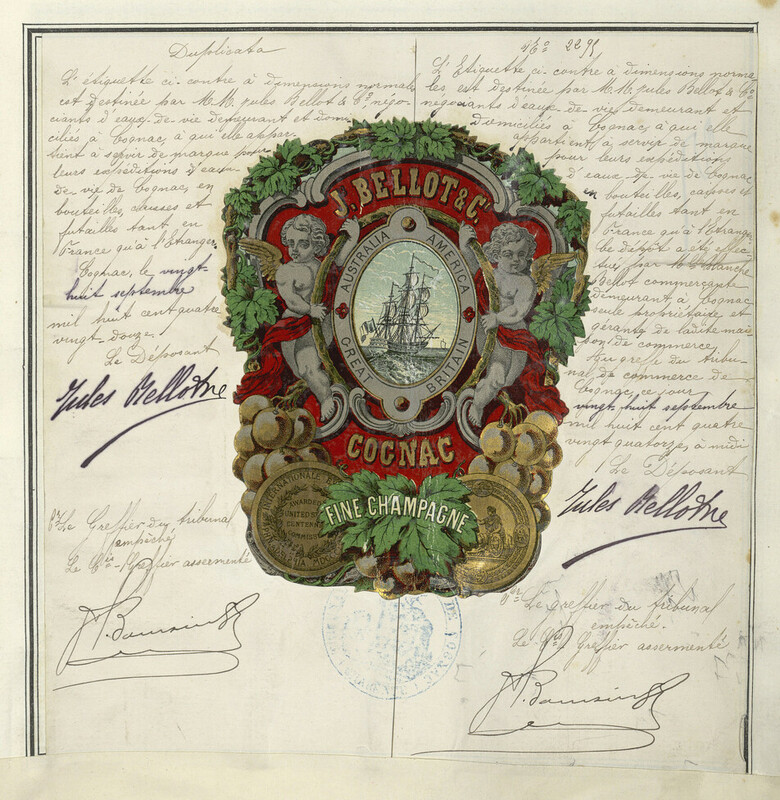 Duplicata
L'étiquette ci-contre à dimensions normales
est destinée par M.M. Jules Bellot & Cº négo-
ciants d'eaux-de-vie demeurant et domi-
ciliés à Cognac, à qui elle appar-
tient à servir de marque pour
leurs expéditions d'eaux-
de-vie de Cognac, en
bouteilles, caisses et
futailles tant en
France qu'à l'Etranger.
Cognac, le vingt-
huit septembre
mil huit cent quatre
vingt-douze.
Le Déposant
Jules Bellot
Pr Le Greffier du tribunal
empêché
Le Cis-Greffier assermenté
Nº 2295
L'Etiquette ci-contre à dimensions norma-
les, est destinée par M.M. Jules Bellot & Cº
négociants d'eaux-de-vie demeurant et
domiciliés à Cognac, à qui elle
appartient, à servir de marque
pour leurs expéditions
d'eaux-de-vie de Cognac
en bouteilles, caisses et
futailles tant en
France qu'à l'Etranger
Le dépôt a été effec-
tué par Blanche
Bellot commerçante
demeurant à Cognac,
seule propriétaire et
gérante de ladite mai-
son de commerce,
Au greffe du tribu-
nal de commerce de
Cognac, ce jour
vingt-huit septembre
mil huit cent quatre
vingt quatorze, à midi
Le Déposant
Jules Bellot
Pr Le greffier du tribunal
empêché.
Le Cis Greffier assermenté
J. BELLOT & Cº
AUSTRALIA AMERICA
GREAT BRITAIN
COGNAC
FINE CHAMPAGNE
AWARDED
UNITED STATES